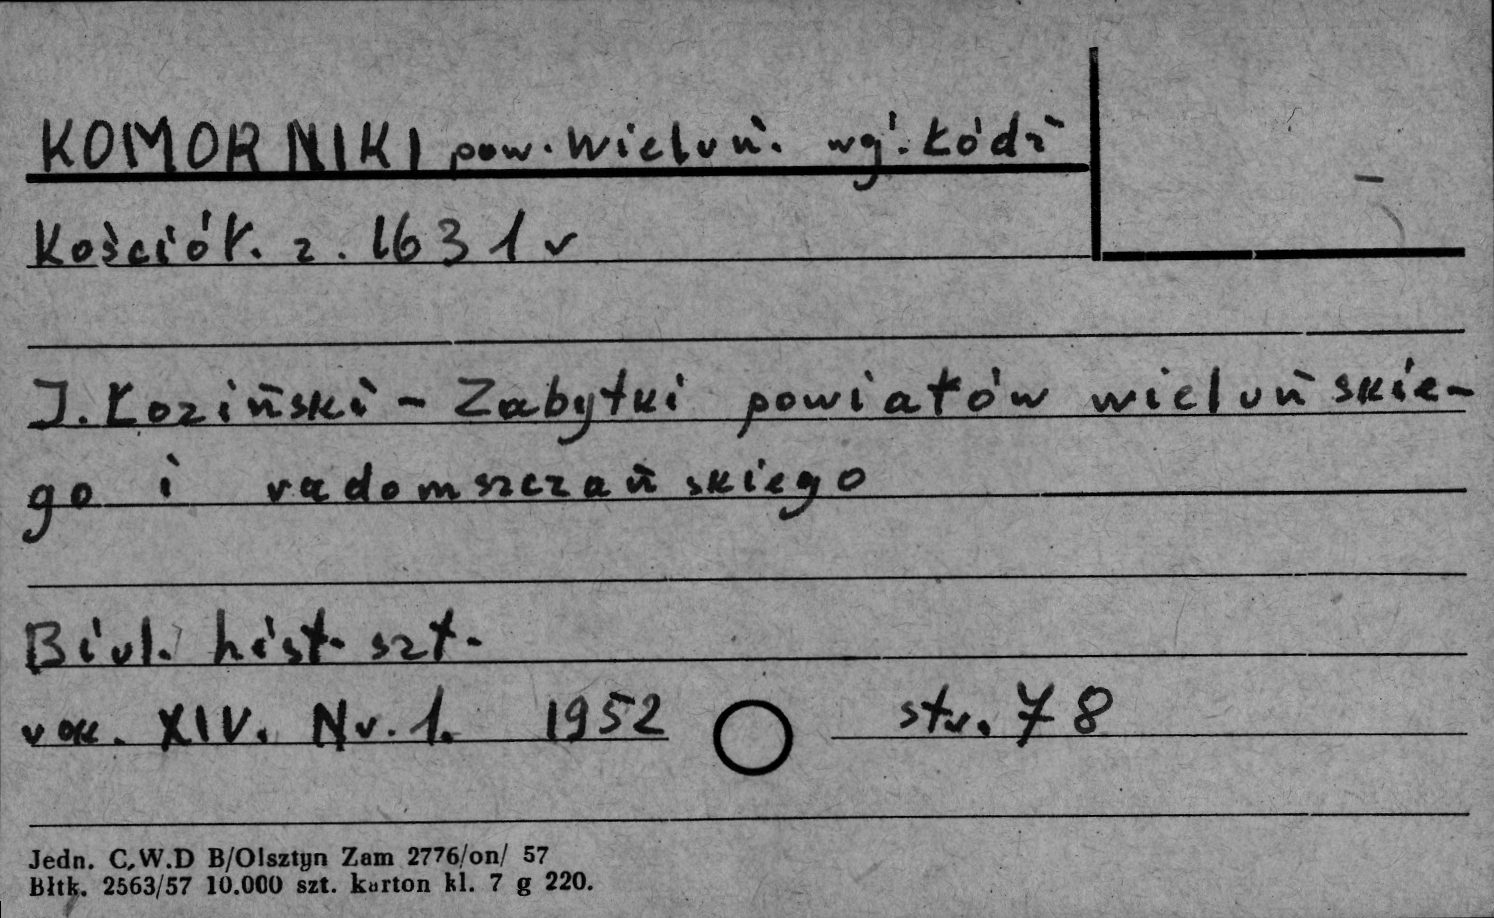 KOMORNIKI pow. Wieluń. wg. Łódź
Kościół. z. 1631 r
J. Łoziński - Zabytki powiatów wieluńskie-
go i radomszczańskiego
Biul. hist. szt.
rok. XIV. Nr. 1. 1952 str. 78
Jedn. C.W.D B/Olsztyn Zam 2776/on/ 57
Błtk. 2563/57 10.000 szt. karton kl. 7 g 220.